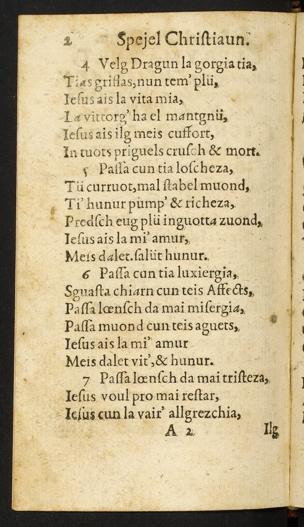 2 Spejel Christiaun.
4 Velg Dragun la gorgia tia,
Tias griflas, nun tem' plü,
Iesus ais la vita mia,
La vittorg' ha el mantgnü,
Iesus ais ilg meis cuffort,
In tuots priguels crusch & mort.
5 Paſſa cun tia loſcheza,
Tü curruot, mal ſtabel muond,
Ti' hunur pùmp' & richeza,
Predſch eug plü inguotta zuond,
Iesus ais la mi' amur,
Meis dalet ſalüt hunur.
6 Paſſa cun tia luxiergia,
Sguaſta chiarn cun teis Affects,
Paſſa lœnſch da mai miſergia,
Paſſa muond cun teis aguets,
Iesus ais la mi' amur
Meis dalet vit', & hunur.
7 Paſſa lœnſch da mai triſteza,
Iesus voul pro mai reſtar,
Iesus cun la vair' allgrezchia,
A 2 Ilg